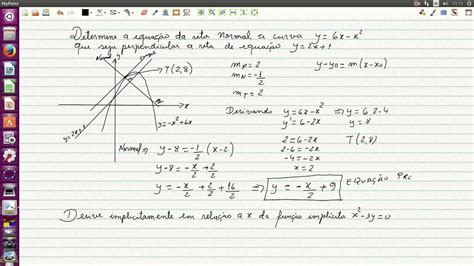 MyPaint
Determine a equação da reta Normal a curva y = 6x - x²
que seja perpendicular a reta de equação y = 2x + 1
Normal
y
T(2,8)
x
y = 2x + 1
y = -x² + 6x
m_P = 2
m_N = -1/2
m_T = 2
y - y0 = m(x - x0)
Derivando y = 6x - x² ⇒ y = 6.2 - 4
y' = 6 - 2x y = 8
2 = 6 - 2x T(2,8)
2 - 6 = -2x
-4 = -2x
x = 2
Normal) y - 8 = -1/2 (x - 2)
y - 8 = -x/2 + 2/2
y = -x/2 + 2/2 + 16/2 ⇒ y = -x/2 + 9 EQUAÇÃO
Derive implicitamente em relação a x da função implícita x² - 3y = 0